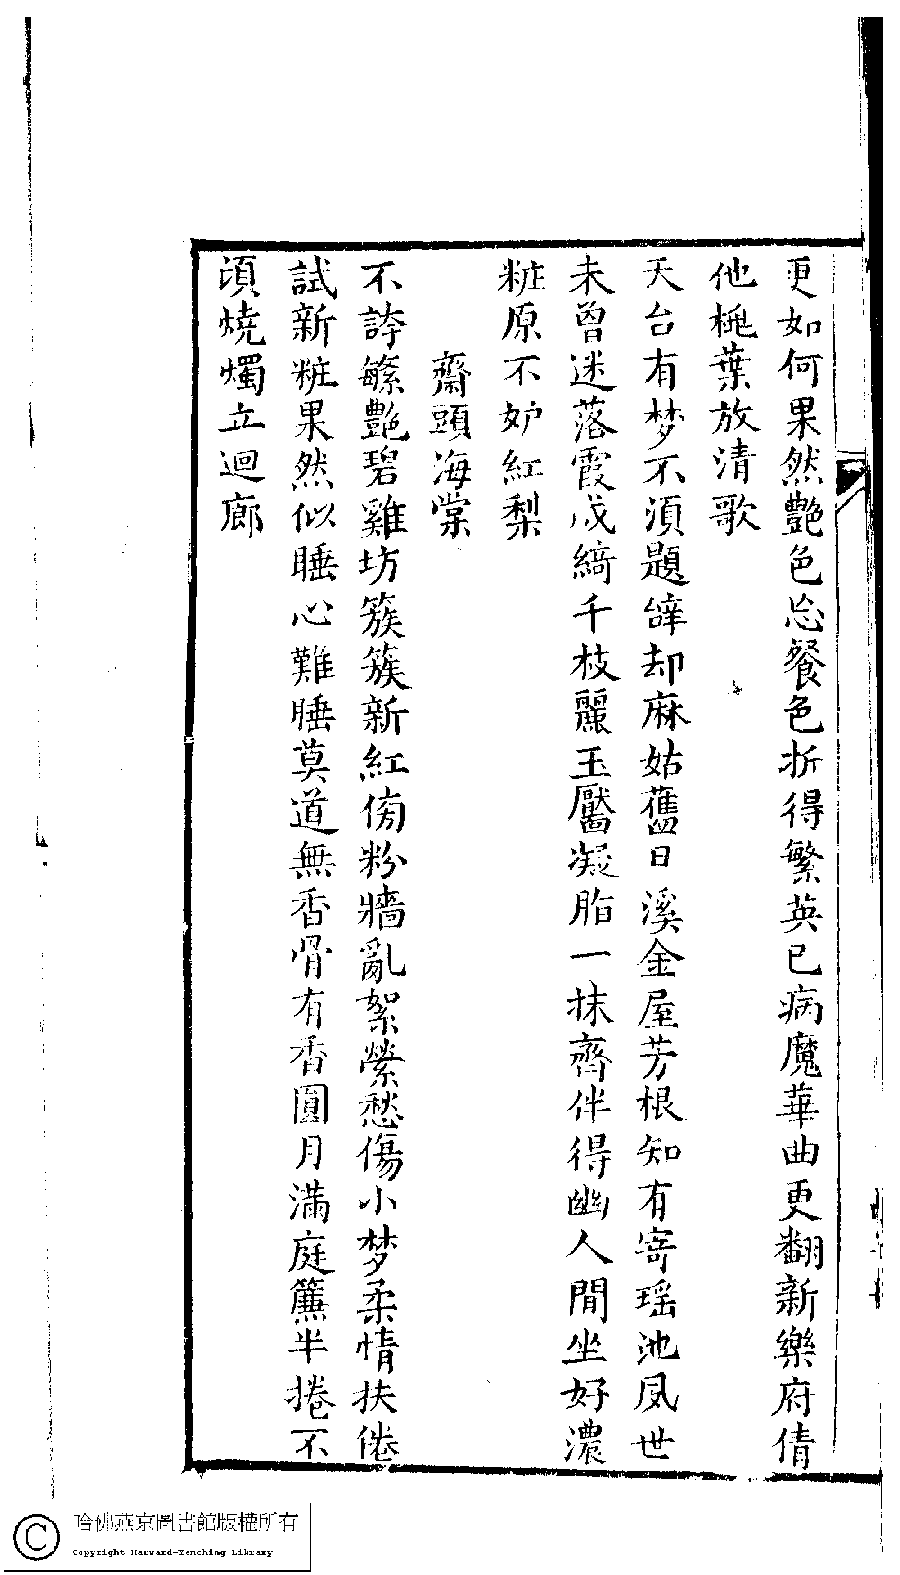 更如何果然艷色忘餐色折得繁英已病魔華曲更翻新樂府倩
他桃葉放清歌
天台有梦不須題辞却麻姑舊日溪金屋芳根知有寄瑶池凤世
未曾迷落霞成綺千枝麗玉靨凝脂一抹齊伴得幽人閒坐好濃
粧原不妒紅梨
齋頭海棠
不誇繁艷碧雞坊簇簇新紅傍粉牆亂絮縈愁傷小梦柔情扶倦
試新粧果然似睡心難睡莫道無香骨有香圓月滿庭簾半捲不
須燒燭立迴廊
哈佛燕京圖書館版權所有
Copyright Harvard-Yenching Library